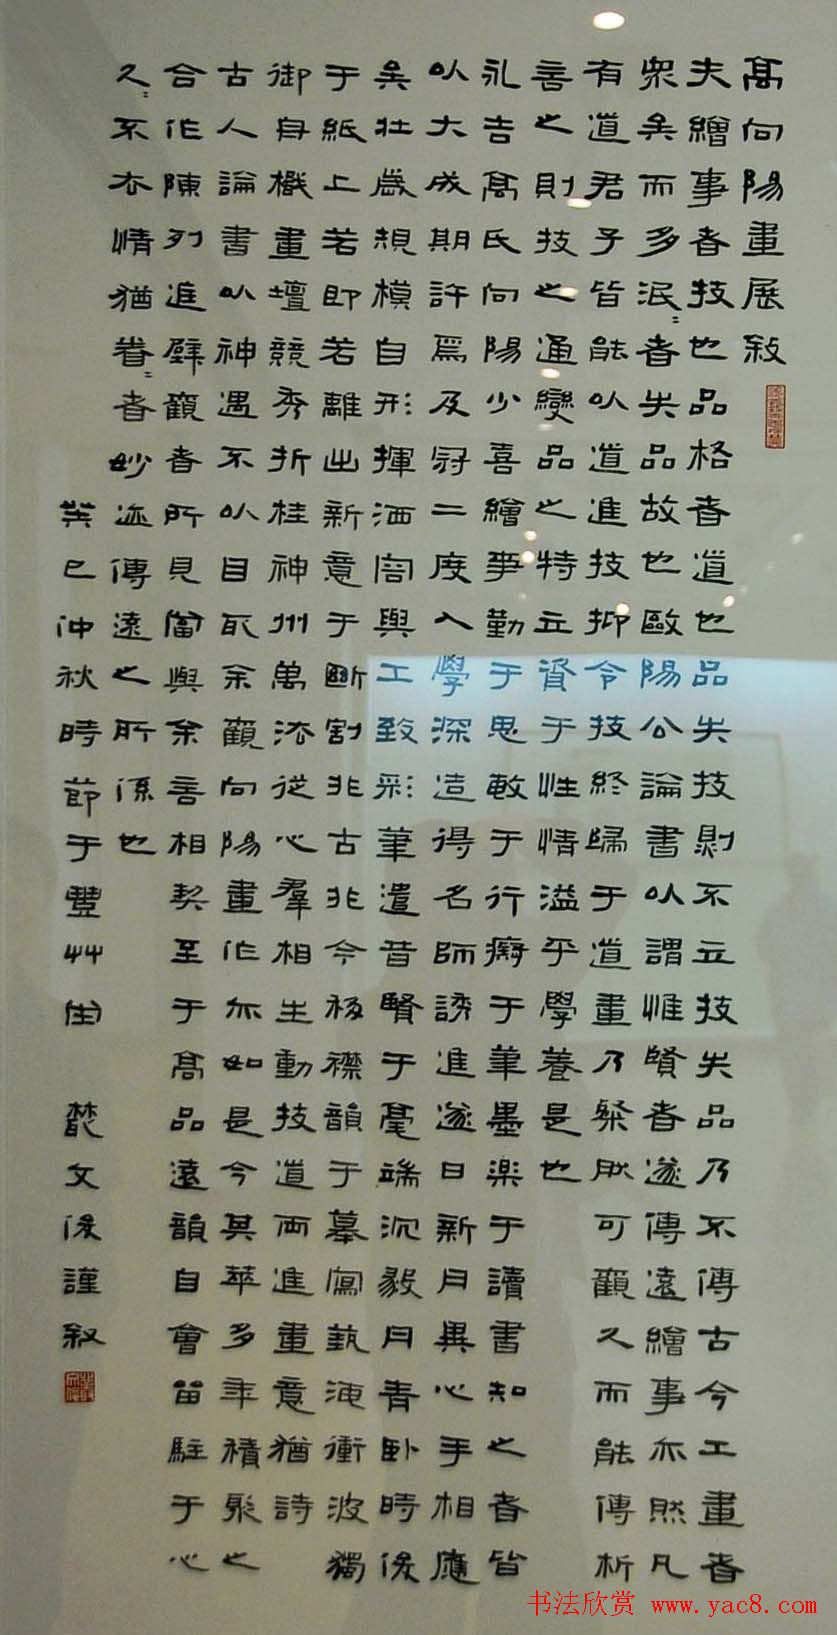 高向陽畫展敍
夫繪事者技也品格者道也品失技則不立技失品乃不傳古今工畫者
眾矣而多泯〻者失品故也歐陽公論書以謂惟賢者遂傳遠繪事亦然凡
有道君子皆能以道進技抑令技終歸于道畫乃粲然可觀久而能傳析
言之則技之通變品之特立資于性情溢乎學養是也
永吉高氏向陽少喜繪事勤于思敏于行癖于筆墨樂于讀書知之者皆
以大成期許焉及冠二度入學深造得名師誘進遂日新月異心手相應
矣壯歲規模自形揮洒宕與工致彩筆遣昔賢于毫端沉毅丹青臥時後
于紙上若即若離出新意于斷割非古非今移襟韻于摹寫執迺衝波獨
御舟檝畫壇競秀折桂神州萬法從心羣相生動技道兩進畫意猶詩
古人論書以神遇不以目取余觀向陽畫作亦如是今其萃多年積聚之
合作陳列進壁觀者所見當與余言相契至于高品遠韻自會留駐于心
久〻不衣情猶眷〻者妙迹傳遠之所係也
癸巳仲秋時節于豐艸
文俊謹敍
书法欣赏 www.yac8.com